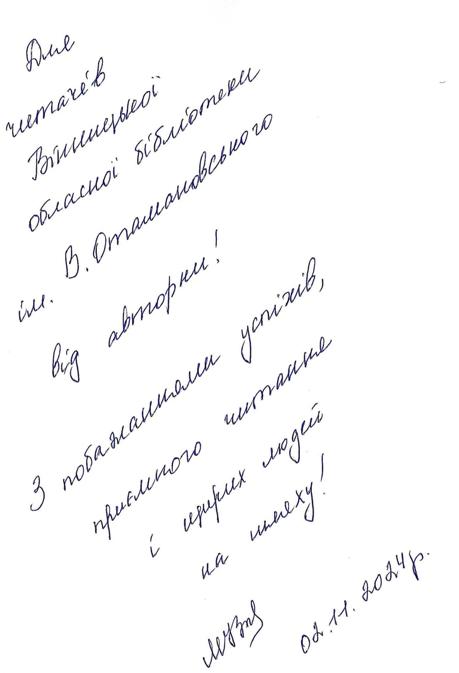 Для
читачів
Вінницької
обласної бібліотеки
ім. В. Отамановського
від авторки!
З побажаннями успіхів,
приємного читання
і щирих людей
на шляху!
02.11.2024р.